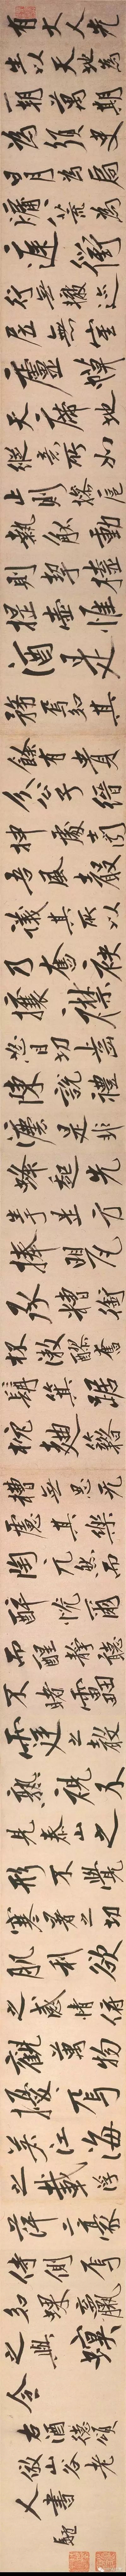 有大人先
生以天地為
一朝萬期
為須臾
日月為扃
牖八荒為
庭衢
行無轍迹
居無室
廬幕
天席地
縱意所如
止則操卮
執觚動
則挈榼
提壺惟
酒是
務焉知其
餘有貴
介公子縉
紳處士聞
吾風聲
議其所以
乃奮袂
攘襟
怒目切齒
陳說禮
法是非
鋒起先
生於是方
捧罌
承糟銜
杯漱醪奮
髯箕踞
枕麴藉
糟無思無
慮其樂
陶陶兀然而
醉恍爾
而醒靜聽
不聞雷
霆之聲
熟視不
見泰山之
形不覺
寒暑之切
肌利欲
之感情俯
觀萬物
擾擾焉
若江海
之載浮
萍二豪
侍側焉
如蜾蠃
之與螟
蛉
右酒德頌
倣山谷老
人書